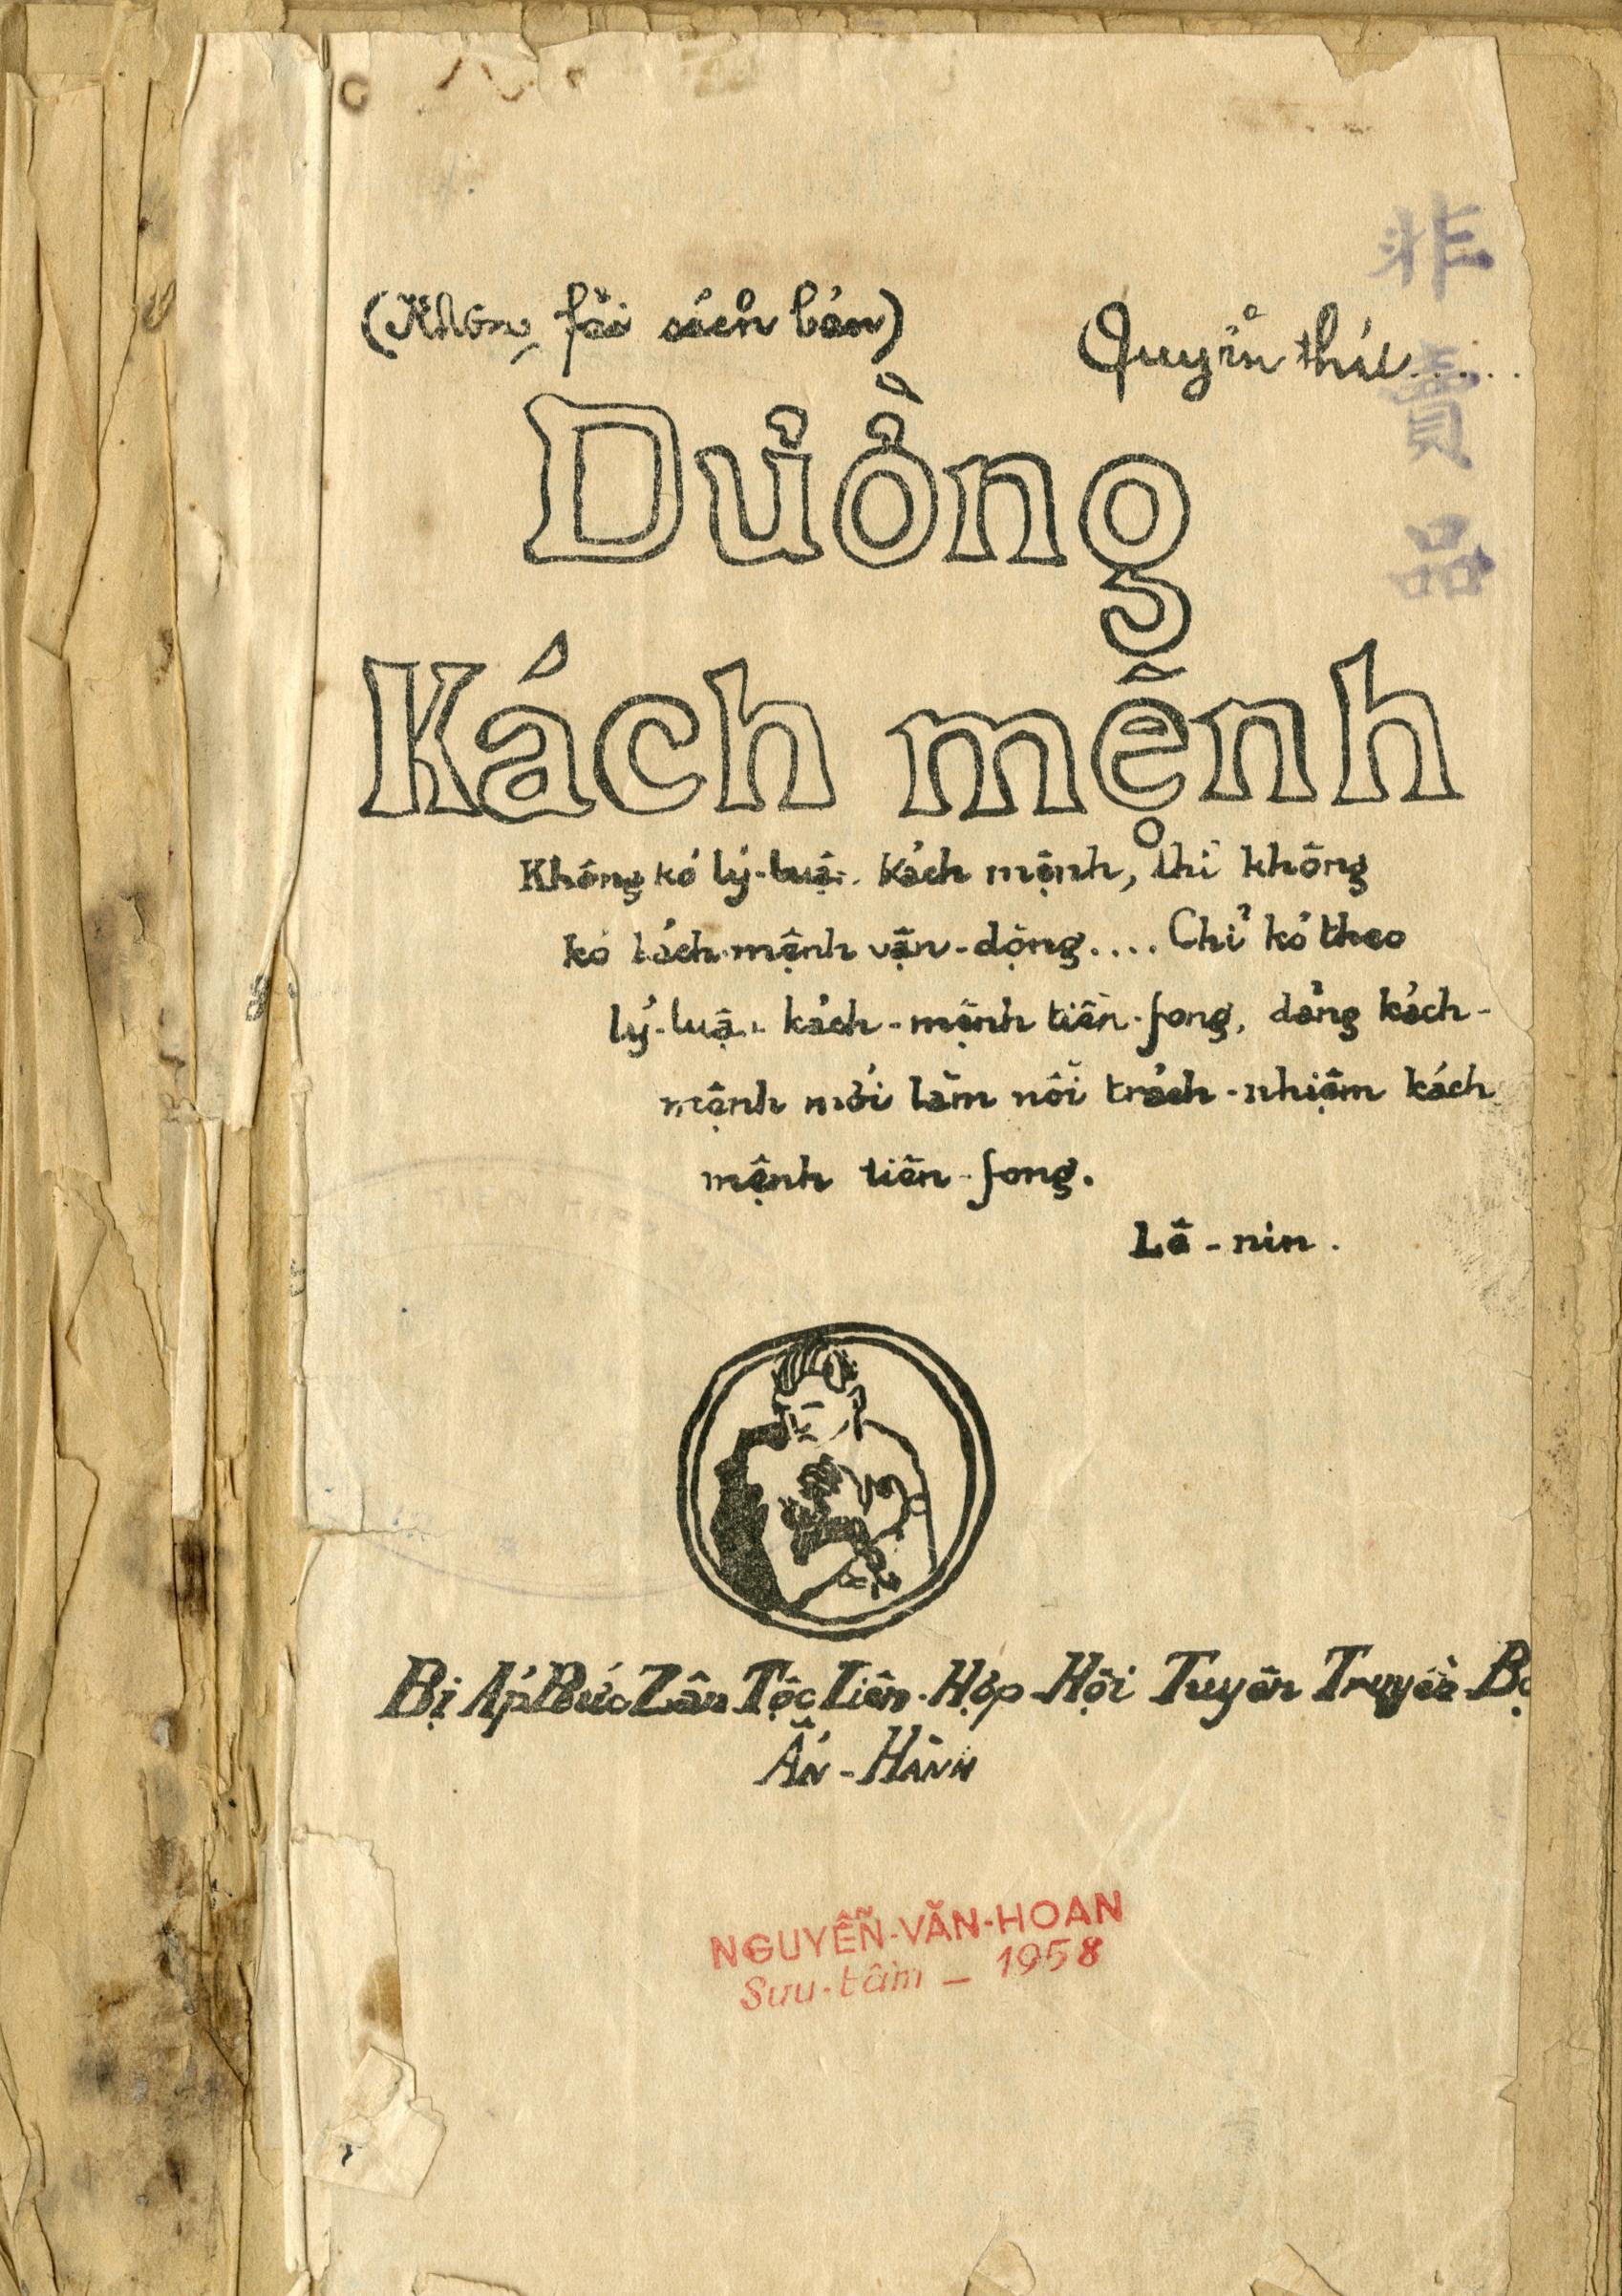 (Không fải sách bán)
Quyển thứ.....
非賣品
Dường
Kách mệnh
Không kó lý-luận kách mệnh, thì không
kó kách mệnh vận-dộng.... Chỉ kó theo
lý-luận kách-mệnh tiền-fong, dảng kách-
mệnh mới làm nổi trách-nhiệm kách
mệnh tiền-fong.
Lê-nin.
Bị Áp Bức Zân Tộc Liên-Hợp-Hội Tuyên Truyền Bộ
Ấn-Hành
NGUYỄN-VĂN-HOAN
Sưu-tầm – 1958